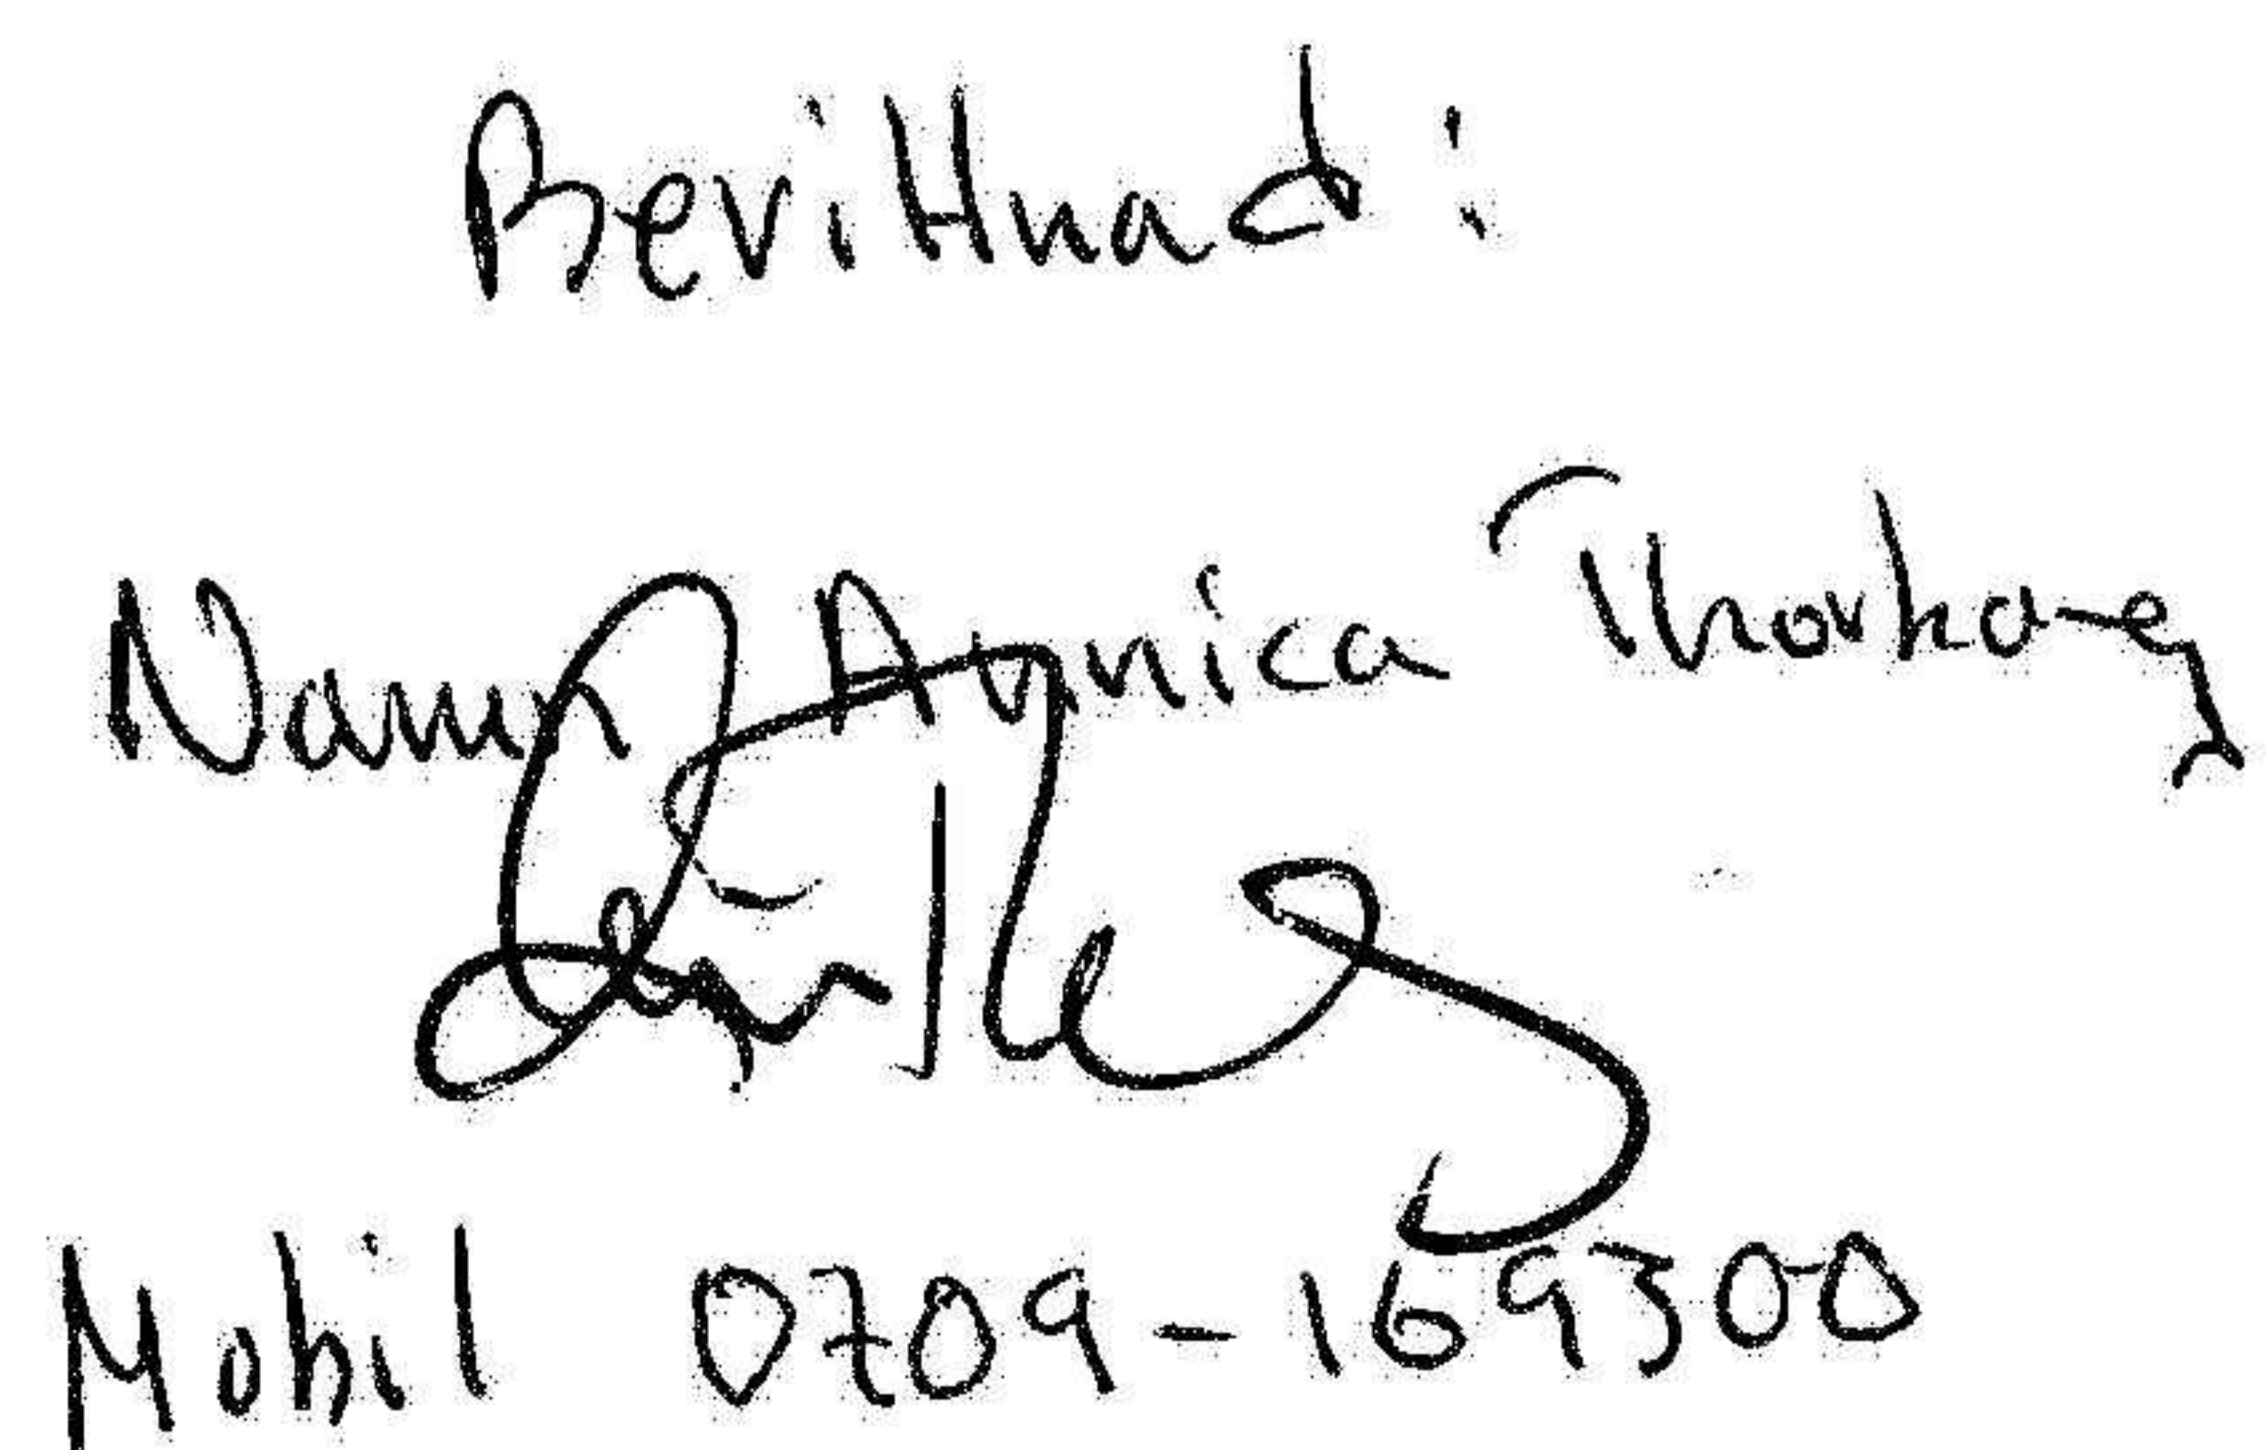 Bevittnad:
Namn Annica Thorberg
Mobil 0709-169300